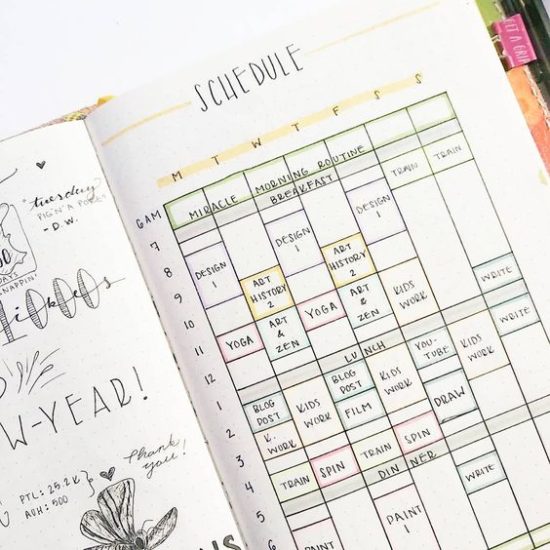 GET A GRIP
SCHEDULE
M T W T F S S
6AM
MIRACLE MORNING ROUTINE
BREAKFAST
TRAIN TRAIN
7
DESIGN
1
DESIGN
1
8
DESIGN
1
ART
HISTORY
2
ART
HISTORY
2
9
ART
&
ZEN
KIDS
WORK
WRITE
10
YOGA
ART
&
ZEN
YOGA
WRITE
11
YOU-
TUBE
KIDS
WORK
12
LUNCH
BLOG
POST
KIDS
WORK
1
BLOG
POST
KIDS
WORK
FILM
DRAW
2
K.
WORK
3
TRAIN
SPIN
TRAIN
SPIN
4
DINNER
WRITE
5
PAINT
1
6
"tuesday
PIG N' A POKE"
- D.W.
50
DAYS
SNAPPIN'
10000
W-YEAR!
Thank
you!
PTL: 25.2K
AOH: 500